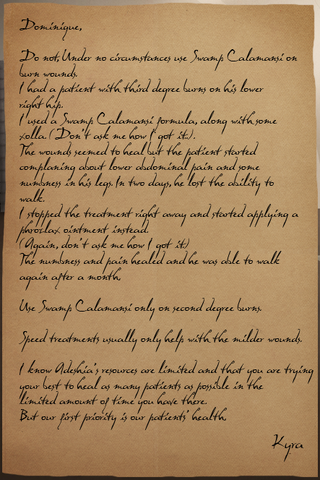 Dominique,
Do not, Under no circumstances use Swamp Calamansi on
burn wounds.
I had a patient with third degree burns on his lower
right hip.
I used a Swamp Calamansi formula, along with some
xolla. (Don't ask me how I got it).
The wounds seemed to heal but the patient started
complaning about lower abdominal pain and some
numbness in his legs. In two days, he lost the ability to
walk.
I stopped the treatment right away and started applying a
phrozlax ointment instead.
(Again, don't ask me how I got it)
The numbness and pain healed and he was able to walk
again after a month.
Use Swamp Calamansi only on second degree burns.
Speed treatments usually only help with the milder wounds.
I know Adeshia's resources are limited and that you are trying
your best to heal as many patients as possible in the
limited amount of time you have there.
But our first priority is our patients' health.
Kyra